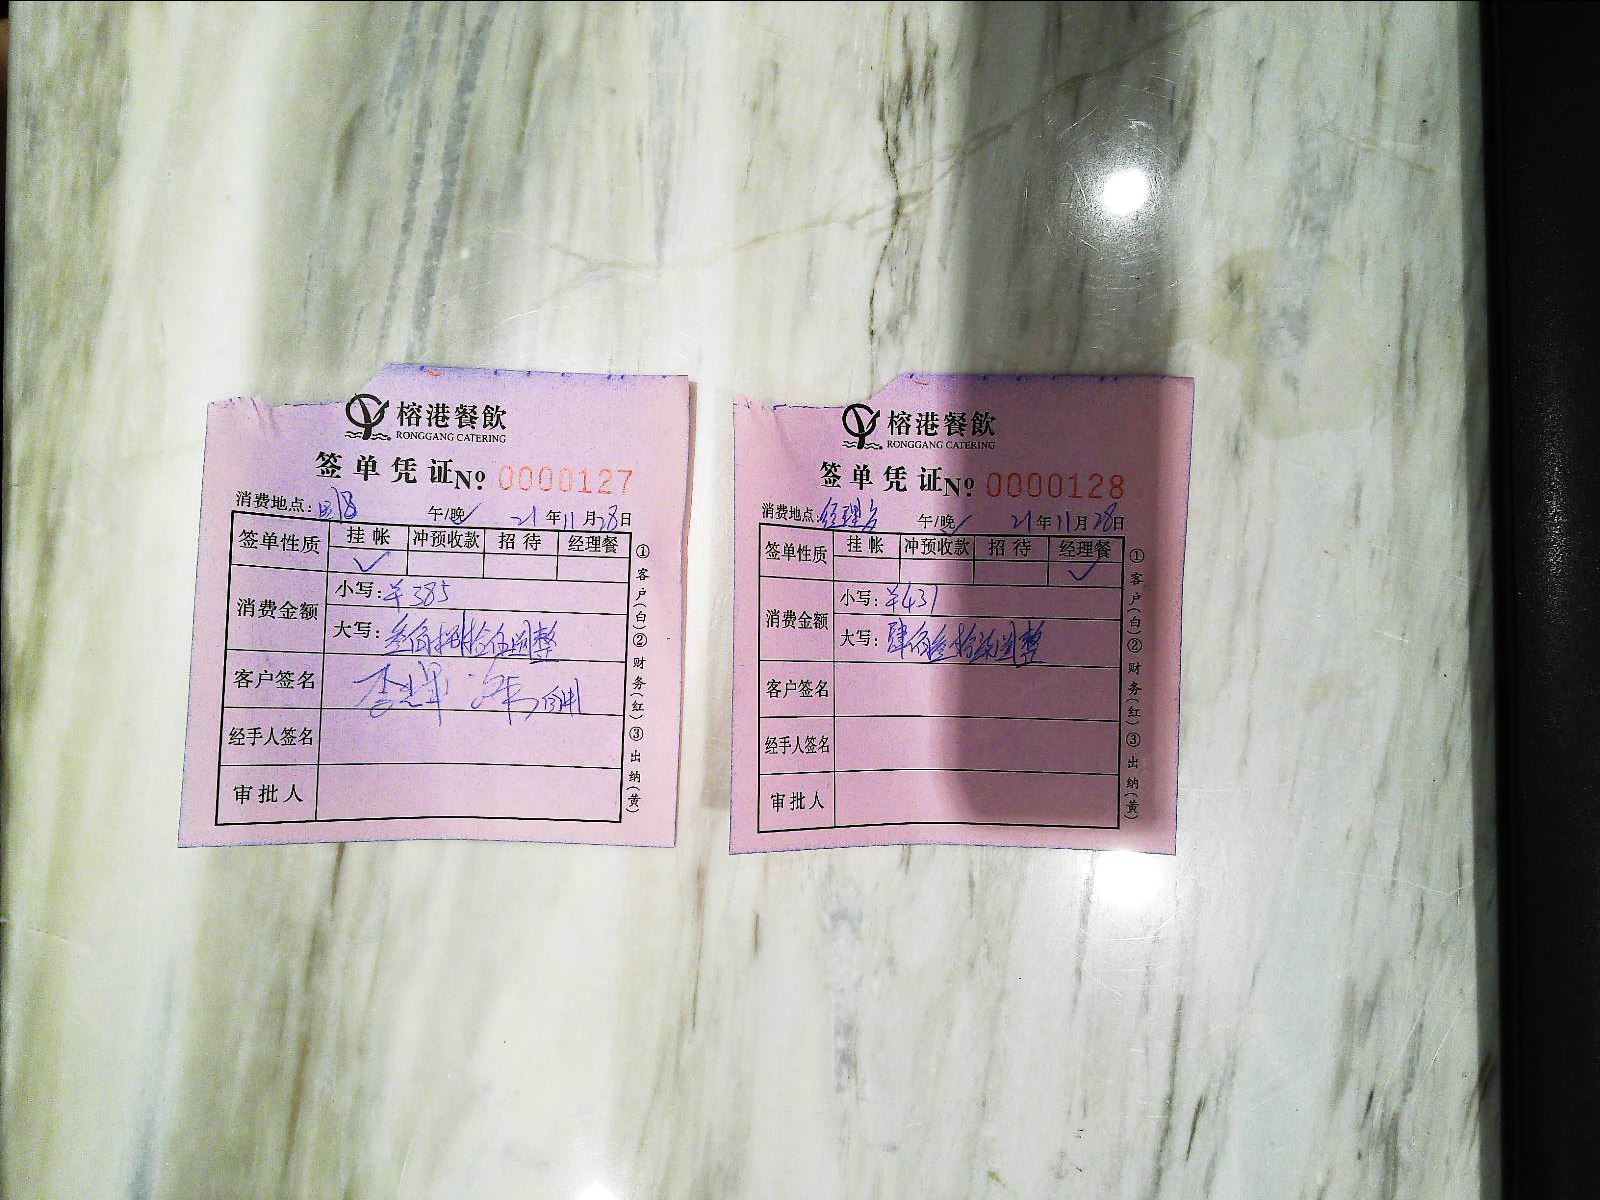 榕港餐飲
RONGGANG CATERING
签单凭证 №0000127
消费地点: 午/晚 21年11月28日
签单性质 挂帐 冲预收款 招待 经理餐
✓
消费金额 小写:¥385
大写:叁佰捌拾伍圆整
客户签名
经手人签名
审批人
①客户(白)②财务(红)③出纳(黄)
榕港餐飲
RONGGANG CATERING
签单凭证 №0000128
消费地点:经理房 午/晚 21年11月28日
签单性质 挂帐 冲预收款 招待 经理餐
✓
消费金额 小写:¥431
大写:肆佰叁拾圆整
客户签名
经手人签名
审批人
①客户(白)②财务(红)③出纳(黄)